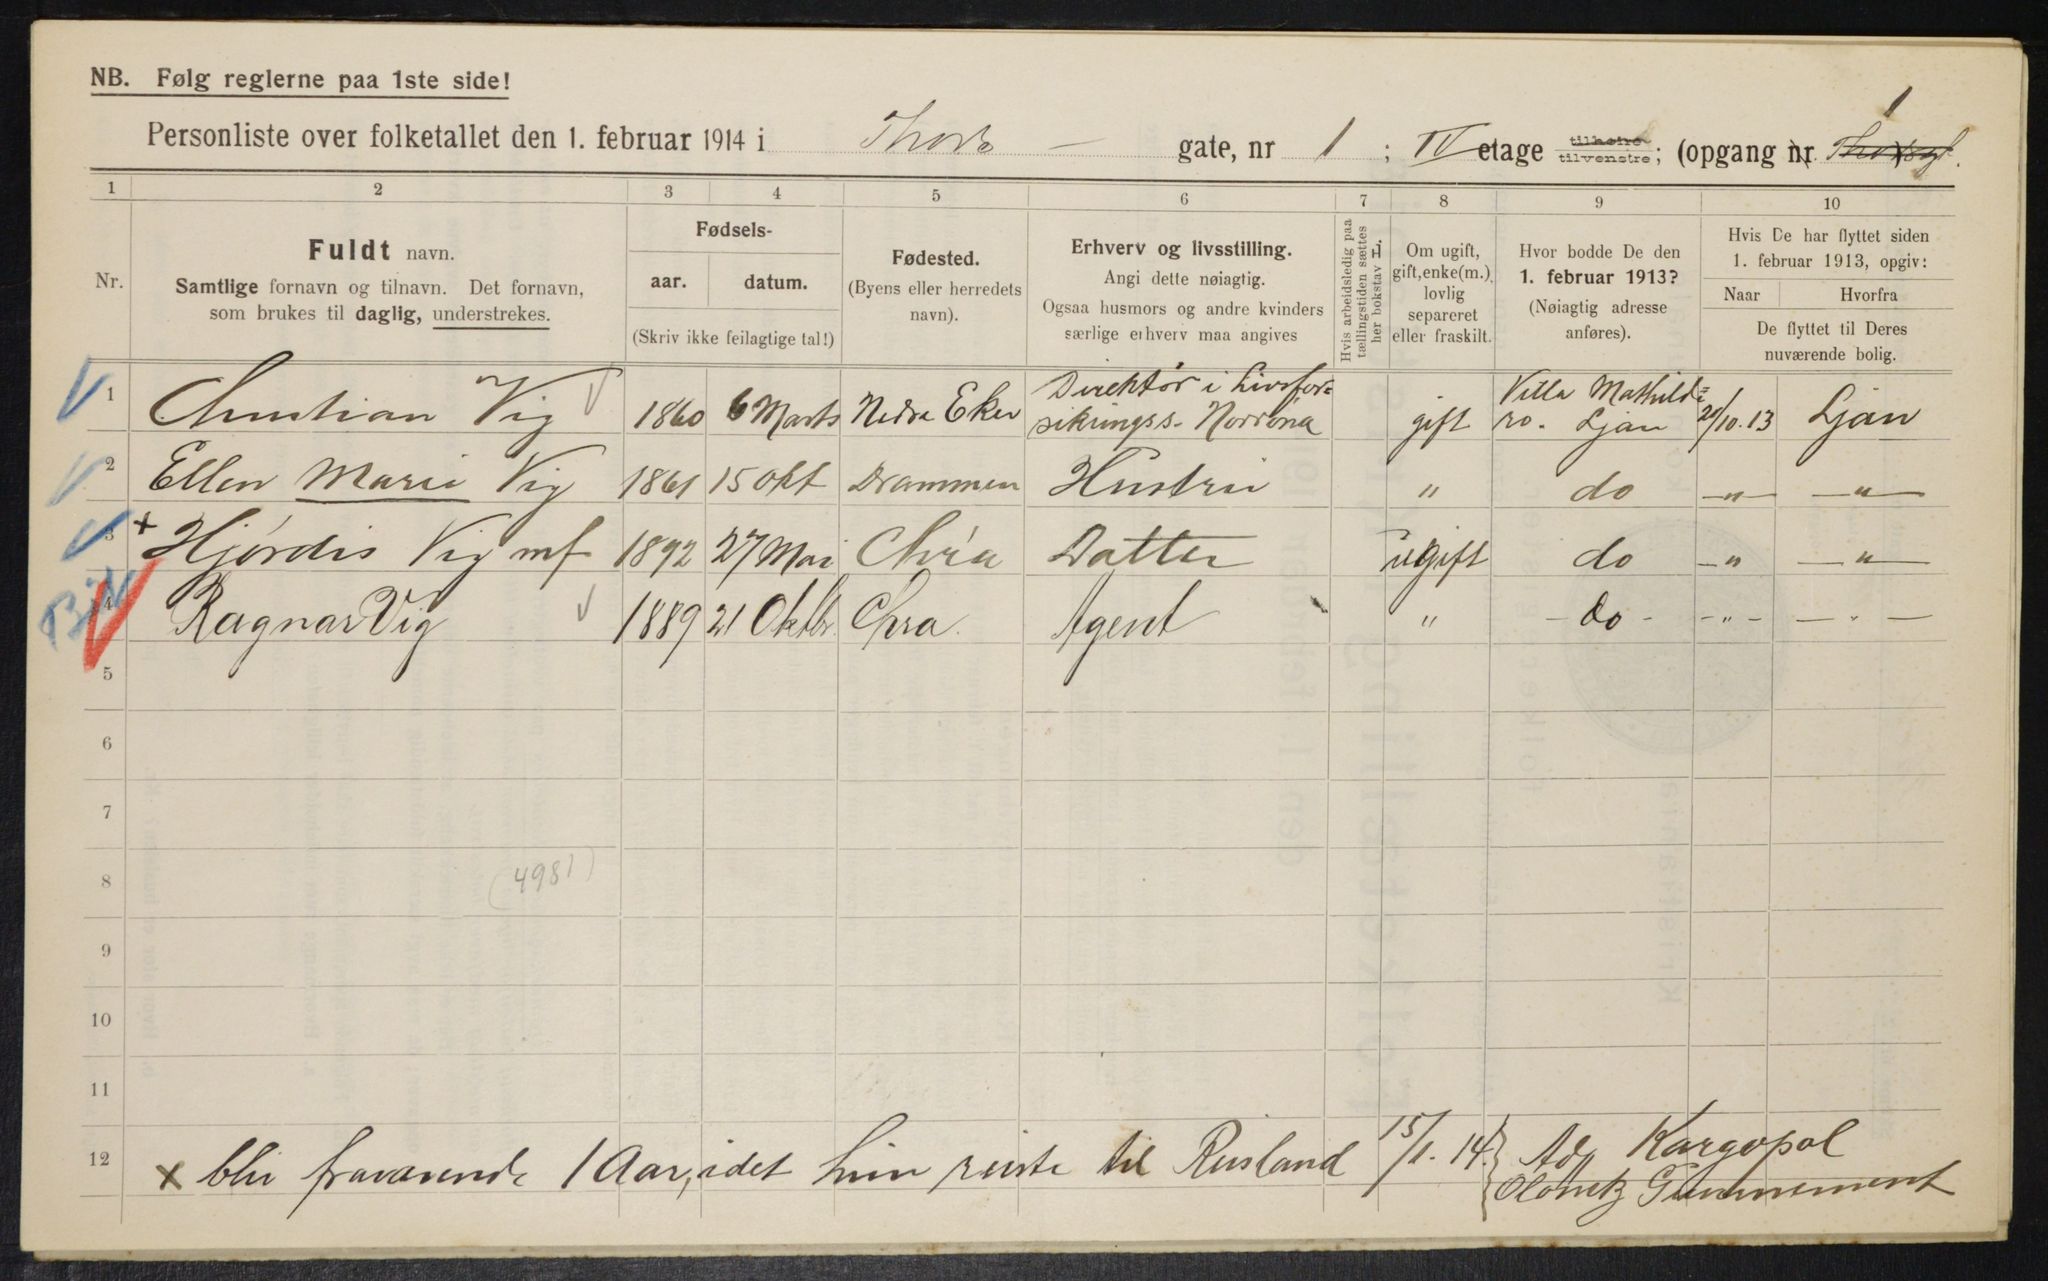 NB. Følg reglerne paa 1ste side!
Personliste over folketallet den 1. februar 1914 i Thors gate, nr 1 ; IV etage tilhøire tilvenstre ; (opgang nr 1 Thorsgt.
1 2 3 4 5 6 7 8 9 10
Nr.
Fuldt navn.
Samtlige fornavn og tilnavn. Det fornavn,
som brukes til daglig, understrekes.
Fødsels-
aar. datum.
(Skriv ikke feilagtige tal!)
Fødested.
(Byens eller herredets
navn).
Erhverv og livsstilling.
Angi dette nøiagtig.
Ogsaa husmors og andre kvinders
særlige erhverv maa angives
Hvis arbeidsledig paa
tællingstiden sættes
her bokstav L.
Om ugift,
gift, enke(m.),
lovlig
separeret
eller fraskilt.
Hvor bodde De den
1. februar 1913?
(Nøiagtig adresse
anføres).
Hvis De har flyttet siden
1. februar 1913, opgiv:
Naar Hvorfra
De flyttet til Deres
nuværende bolig.
1 Christian Vig 1860 6 Marts Nedre Eker Direktør i Livsfor= sikringss. Norröna gift Villa Mathild= ro. Ljan 20/10.13 Ljan
2 Ellen Marie Vig 1861 15 Okt Drammen Hustru " do —"— —"—
3 × Hjørdis Vig mf 1892 27 Mai Chria Datter ugift do —"— —"—
4 Ragnar Vig 1889 21 Oktbr. Chra. Agent " - do - -"- —"—
5
6
7
8 (4981)
9
10
11
12 × blir fraværende 1 Aar, idet hun reiste til Rusland 15/1.14. Adr Kargopol
Olonetz Guvernement